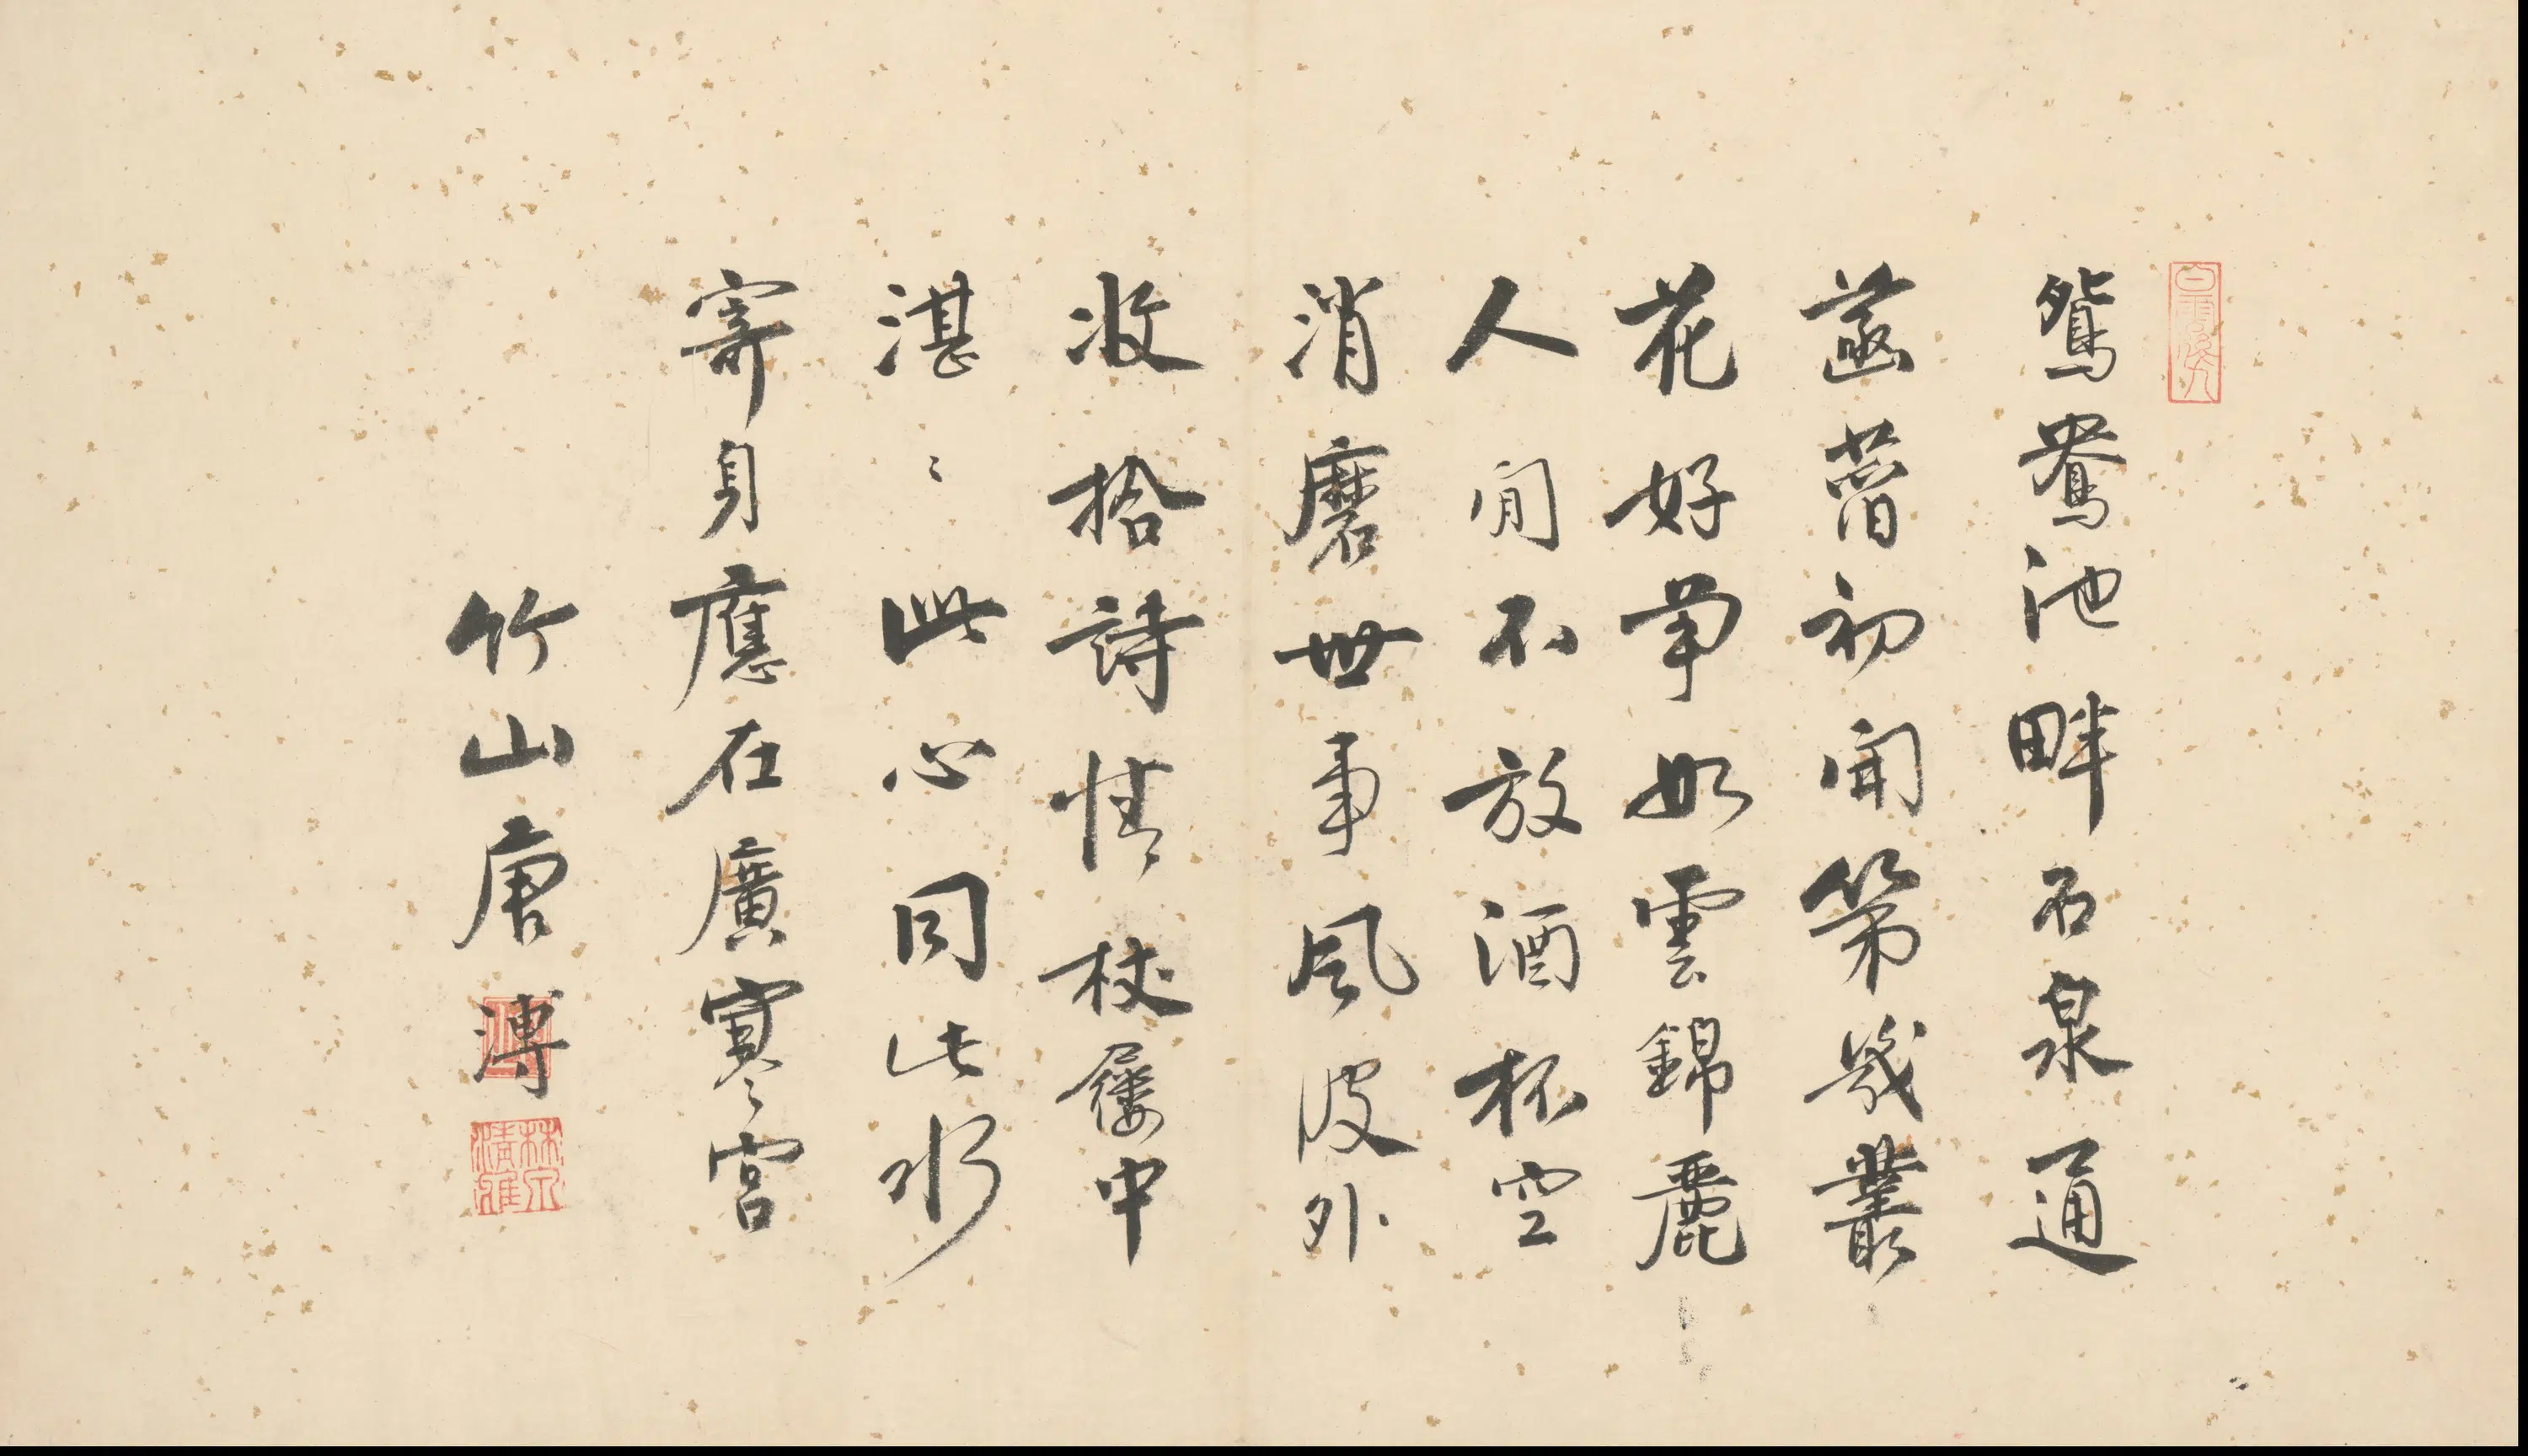 鴛鴦池畔石泉通
菡萏初開第幾叢
花好爭如雲錦麗
人閒不放酒杯空
消磨世事風波外
收拾詩情杖屨中
湛〻此心同此水
寄身應在廣寒宮
竹山唐溥